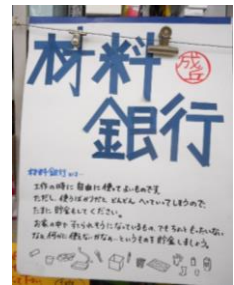 材料
成丘
銀行
材料銀行は…
工作の時に自由に使ってよいものです。
ただし、使うばかりだと、どんどんへっていってしまうので、
たまに貯金もしてください。
お家の中ですてられそうになっているもの、でもちょっともったいない、
なんか何かに使えないかなぁ…というものを貯金しましょう。